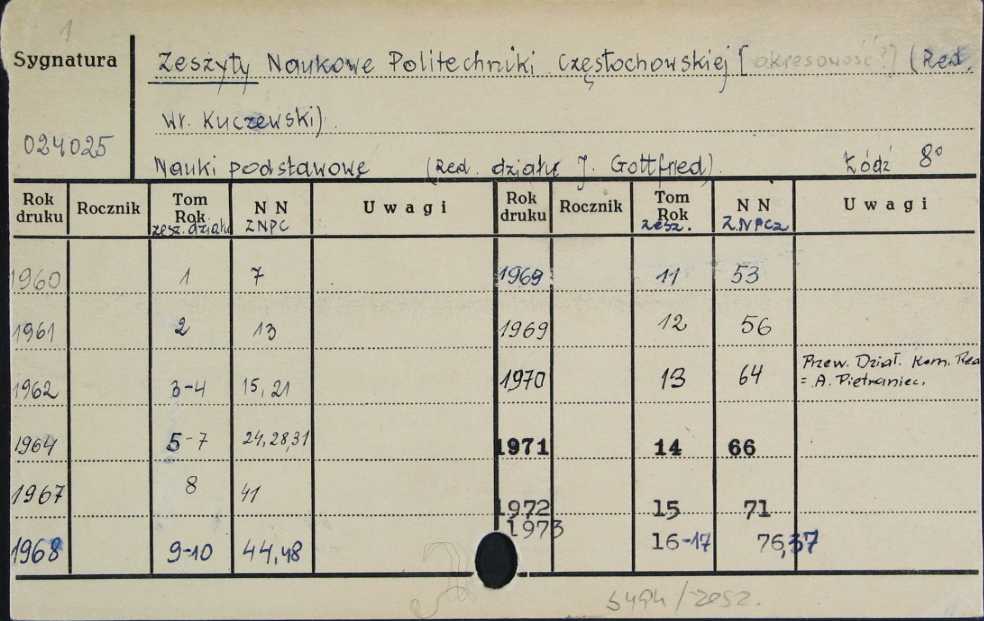 1
Sygnatura
Zeszyty Naukowe Politechniki Częstochowskiej [okresowość?] (Red.
Wr. Kuczewski).
024025
Nauki podstawowe (Red. działu J. Gottfried). Łódź 8°
Rok druku Rocznik Tom Rok zesz. działu N N ZNPC Uwagi Rok druku Rocznik Tom Rok zesz. N N Z.NPCz Uwagi
1960 1 7 1969 11 53
1961 2 13 1969 12 56
1962 3-4 15, 21 1970 13 64 Przew. Dział. Kom. Red
= A. Pietraniec.
1964 5-7 24, 28, 31 1971 14 66
1967 8 41 1972 15 71
1968 9-10 44, 48 1973 16-17 76,